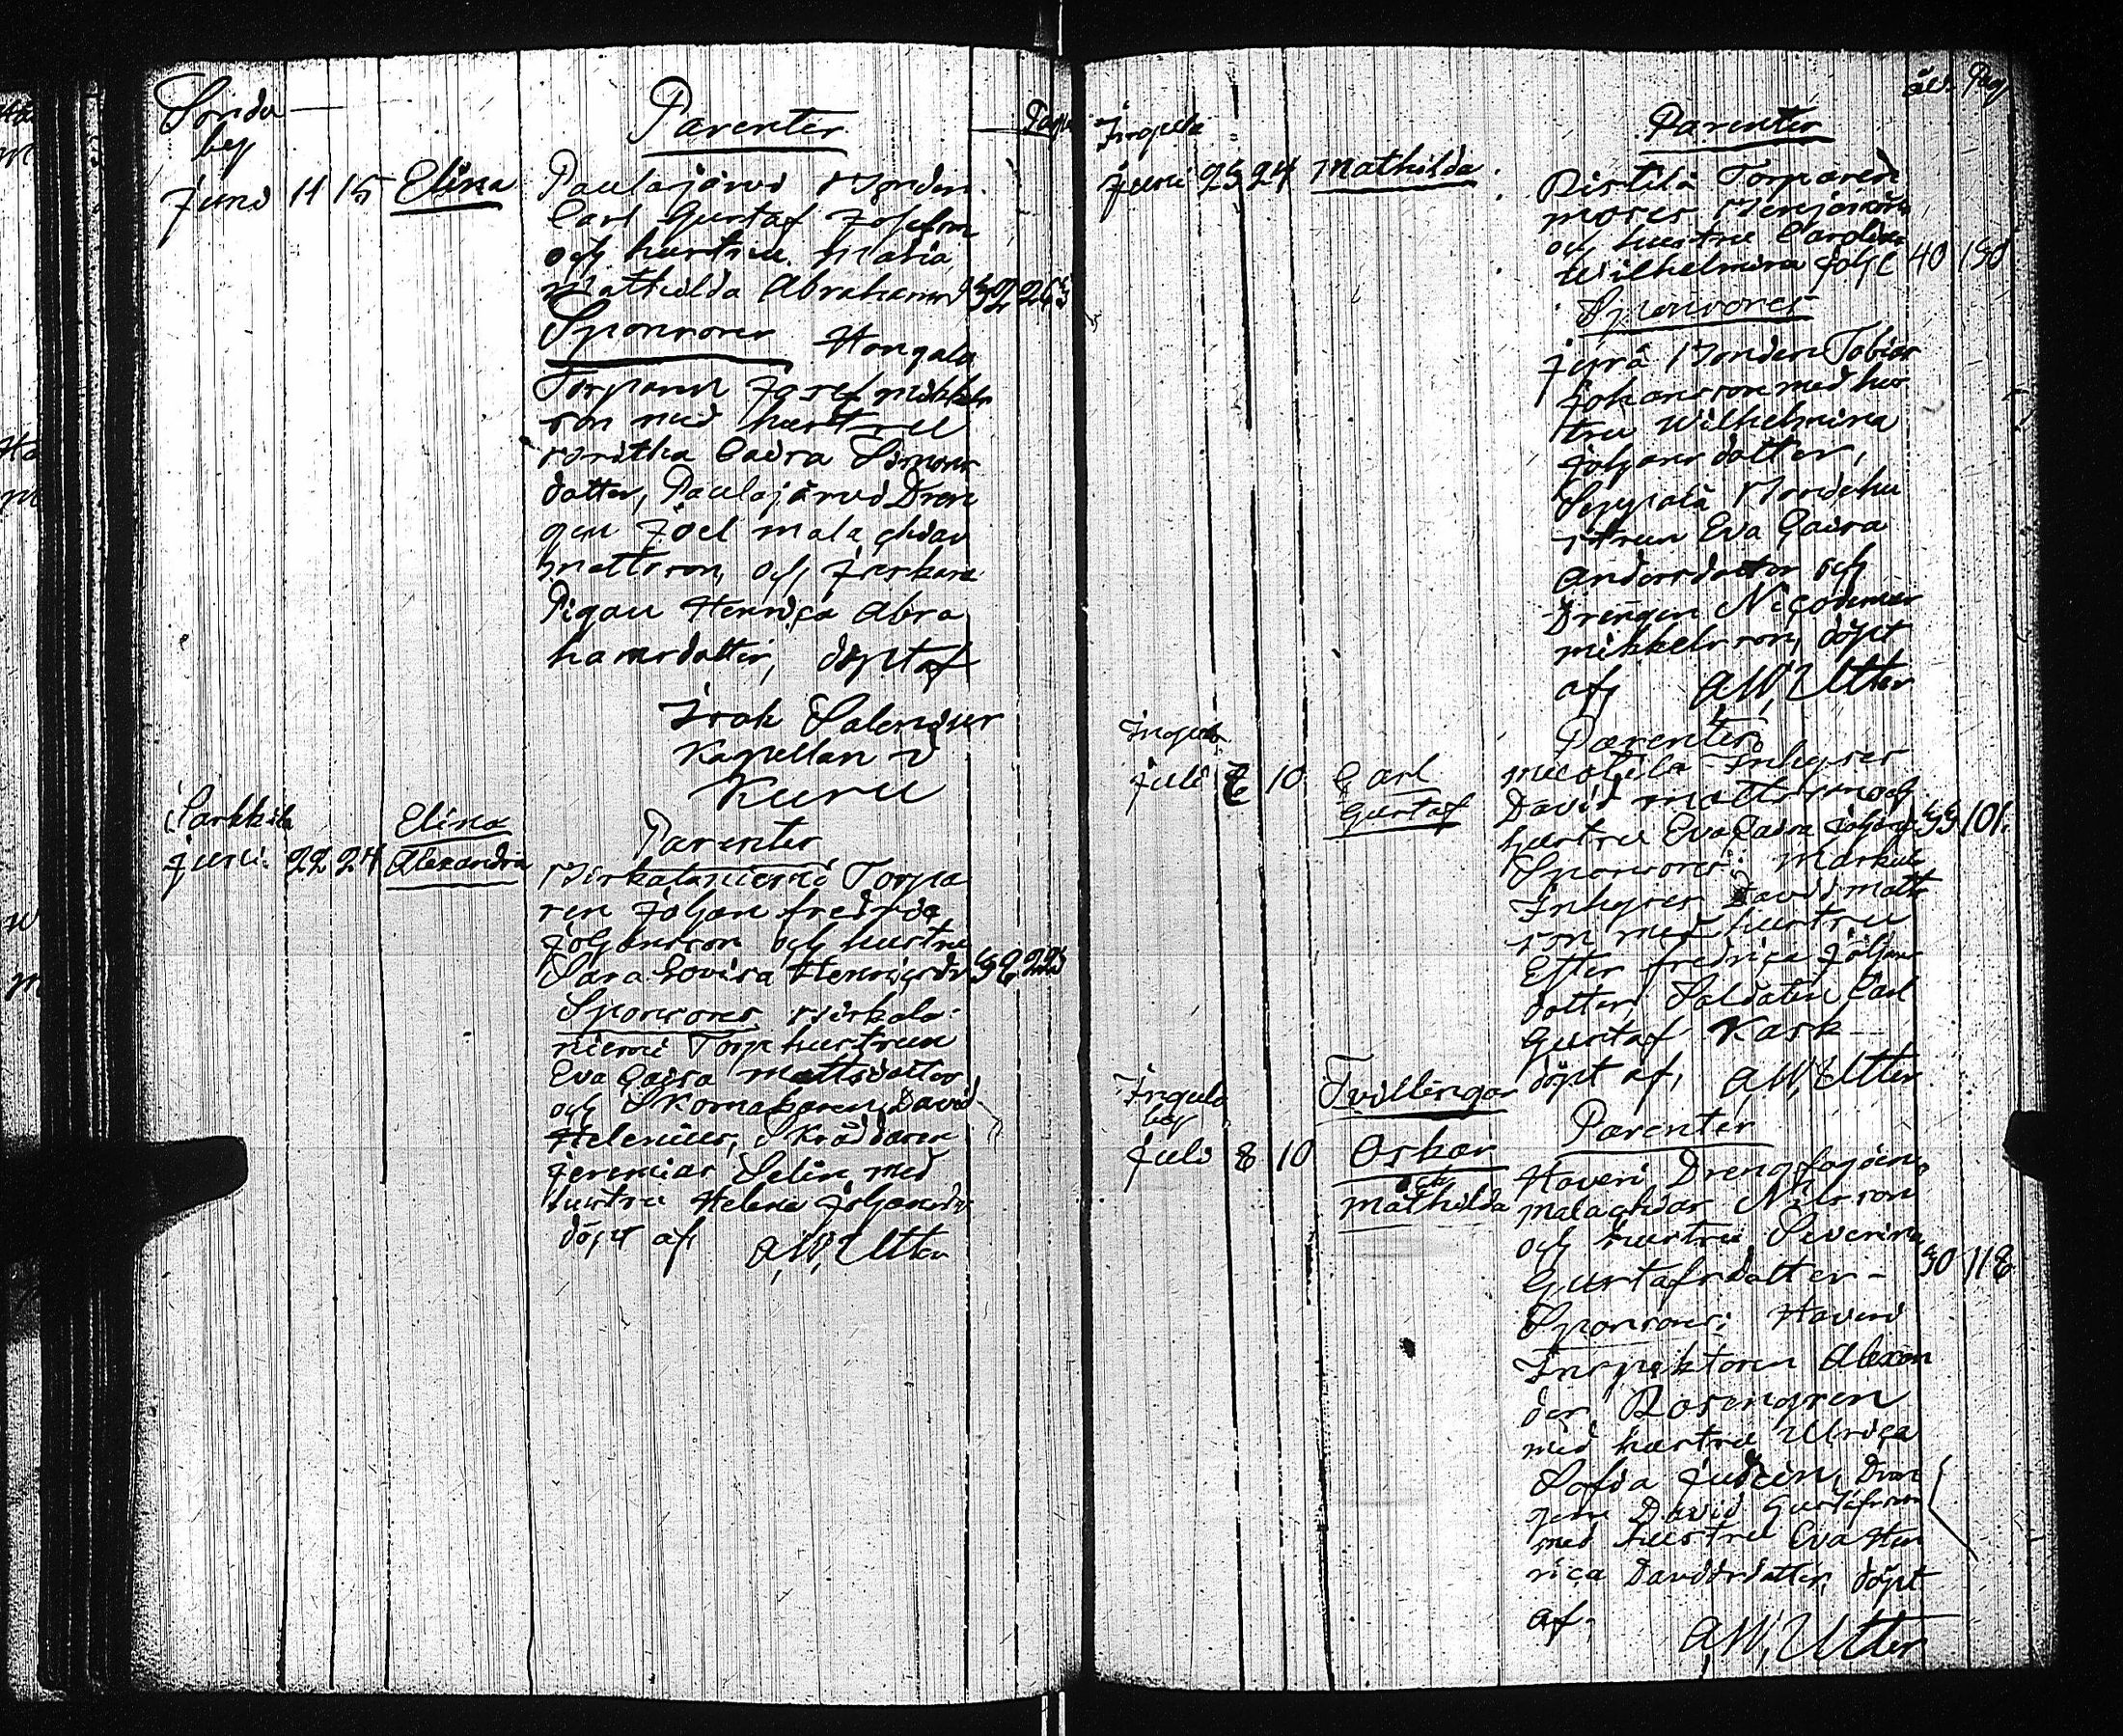 Parenter
Sonda
by
Juni 14 15 Elina Paulajärvi Bonden
Carl Gustaf Josefsson
och hustru Maria
Mathilda Abrahamsd 32 263
Sponsorer Hongala
Torparen Josef Mikkels
son med hustru
Caisa Simons
dotter, Paulajärvi Dren
gen Joel Malachias
Mattsson, och
Pigan Henrica Abra
hamsdotter, döpt af
Isak Salenius
Kapellan i
Kuru
Sarkkila
Juni 22 24 Elina
Alexandra
Parenter
Mirkalaniemi Torpa
ren Johan Fredric
Johansson och hustru
Sara Lovisa Henricsdr 38 223
Sponsores Mirkala-
niemi Torp hustrun
Eva Caisa Mattsdotter
och Skomakaren David
Helenius, Skräddaren
Jeremias Selin med
hustru Helena Johansdr
döpt af A, W, Utter
åld. Pag,
Parenter
Juni 23 24 Mathilda Ristilä Torparen
Moses
och hustru Carolina
Wilhelmina Joh 40 130
Sponsores
Jyrä Bonden Tobias
Johansson med hus
tru Wilhelmina
Johansdotter,
Seppälä Bondehu
strun Eva Caisa
Andersdotter och
Drengen Nicodemus
Mikkelsson, döpt
af, A, W, Utter
Parenter
Juli 10 Carl
Gustaf
Inhyses
David Mattsson och
hustru Eva Caisa 33 101.
Sponsores: Markul
Inhyses David Matts
son med hustru
Ester Fredrica Johans
dotter, Soldaten Carl
Gustaf Kask
döpt af, A, W, Utter
Ingula
by
Juli 8 10 Tvillingar
Oskar
och
Mathilda
Parenter
Haveri Dreng
Malachias Nilsson
och hustru Severina
Gustafsdotter - 30 118
Sponsores; Haveri
Inspektoren Alexan
der Rosengren
med hustru Ulrica
Sofia Judeen, Dren
gen David Gustafsson
med hustru Eva Hen
rica Davidsdotter, döpt
af, A, W, Utter